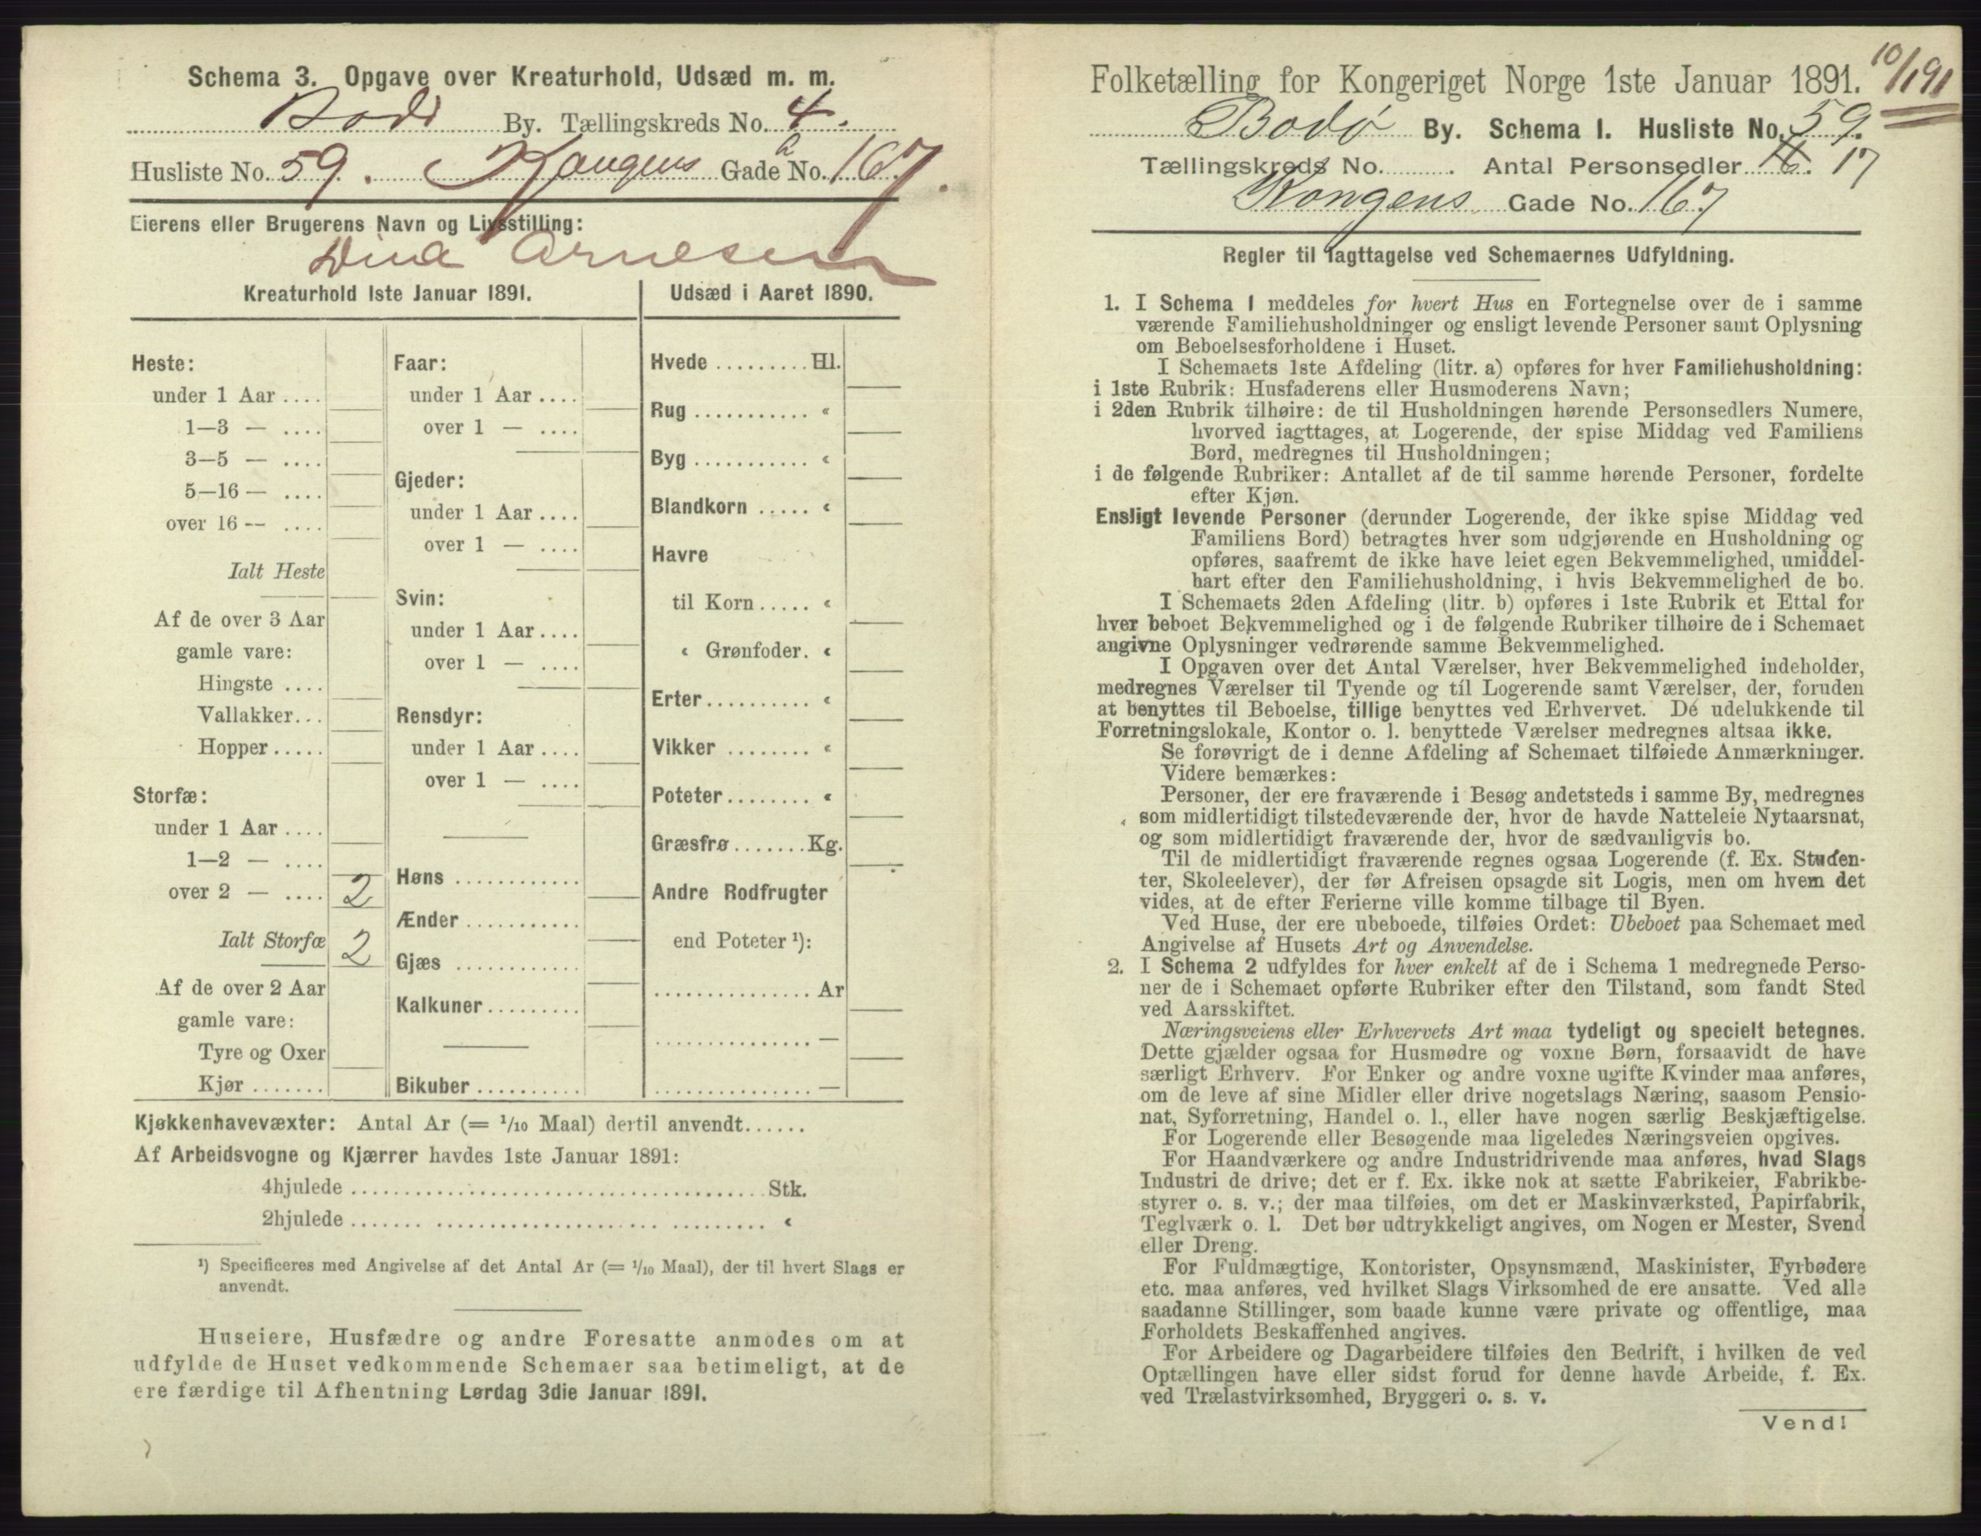 Schema 3. Opgave over Kreaturhold, Udsæd m. m.
Bodø By. Tællingskreds No. 4.
Husliste No. 59. Kongens Gade No. 167.
Eierens eller Brugerens Navn og Livsstilling:
Dina Arnesen
Kreaturhold 1ste Januar 1891.
Heste:
under 1 Aar ....
1—3 — ....
3—5 — ....
5—16 — ....
over 16 -- ....
Ialt Heste
Af de over 3 Aar
gamle vare:
Hingste ....
Vallakker...
Hopper.....
Storfæ:
under 1 Aar ....
1—2 — ....
over 2 — .... 2
Ialt Storfæ 2
Af de over 2 Aar
gamle vare:
Tyre og Oxer
Kjør .......
Faar:
under 1 Aar ....
over 1 — ....
Gjeder:
under 1 Aar ....
over 1 — ....
Svin:
under 1 Aar ....
over 1 — ....
Rensdyr:
under 1 Aar ....
over 1 — ....
Høns ............
Ænder ...........
Gjæs ............
Kalkuner.........
Bikuber ..........
Udsæd i Aaret 1890.
Hvede ......... Hl.
Rug ........... «
Byg ........... «
Blandkorn ..... «
Havre
til Korn..... «
« Grønfoder. «
Erter.......... «
Vikker ........ «
Poteter........ «
Græsfrø....... Kg.
Andre Rodfrugter
end Poteter ¹):
............... Ar
............... —
............... —
Kjøkkenhavevæxter: Antal Ar (= 1/10 Maal) dertil anvendt......
Af Arbeidsvogne og Kjærrer havdes 1ste Januar 1891:
4hjulede ....................................... Stk.
2hjulede ....... ................... ......... «
¹) Specificeres med Angivelse af det Antal Ar (= 1/10 Maal), der til hvert Slags er
anvendt.
Huseiere, Husfædre og andre Foresatte anmodes om at
udfylde de Huset vedkommende Schemaer saa betimeligt, at de
ere færdige til Afhentning Lørdag 3die Januar 1891.
10/1 91
Folketælling for Kongeriget Norge 1ste Januar 1891.
Bodø By. Schema I. Husliste No. 59.
Tællingskreds No. ........ Antal Personsedler 16. 17
Kongens Gade No. 167
Regler til Iagttagelse ved Schemaernes Udfyldning.
1. I Schema 1 meddeles for hvert Hus en Fortegnelse over de i samme
værende Familiehusholdninger og ensligt levende Personer samt Oplysning
om Beboelsesforholdene i Huset.
I Schemaets 1ste Afdeling (litr. a) opføres for hver Familiehusholdning:
i 1ste Rubrik: Husfaderens eller Husmoderens Navn;
i 2den Rubrik tilhøire: de til Husholdningen hørende Personsedlers Numere,
hvorved iagttages, at Logerende, der spise Middag ved Familiens
Bord, medregnes til Husholdningen;
i de følgende Rubriker: Antallet af de til samme hørende Personer, fordelte
efter Kjøn.
Ensligt levende Personer (derunder Logerende, der ikke spise Middag ved
Familiens Bord) betragtes hver som udgjørende en Husholdning og
opføres, saafremt de ikke have leiet egen Bekvemmelighed, umiddel-
bart efter den Familiehusholdning, i hvis Bekvemmelighed de bo.
I Schemaets 2den Afdeling (litr. b) opføres i 1ste Rubrik et Ettal for
hver beboet Bekvemmelighed og i de følgende Rubriker tilhøire de i Schemaet
angivne Oplysninger vedrørende samme Bekvemmelighed.
I Opgaven over det Antal Værelser, hver Bekvemmelighed indeholder,
medregnes Værelser til Tyende og til Logerende samt Værelser, der, foruden
at benyttes til Beboelse, tillige benyttes ved Erhvervet. De udelukkende til
Forretningslokale, Kontor o. l. benyttede Værelser medregnes altsaa ikke.
Se forøvrigt de i denne Afdeling af Schemaet tilføiede Anmærkninger.
Videre bemærkes:
Personer, der ere fraværende i Besøg andetsteds i samme By, medregnes
som midlertidigt tilstedeværende der, hvor de havde Natteleie Nytaarsnat,
og som midlertidigt fraværende der, hvor de sædvanligvis bo.
Til de midlertidigt fraværende regnes ogsaa Logerende (f. Ex. Studen-
ter, Skoleelever), der før Afreisen opsagde sit Logis, men om hvem det
vides, at de efter Ferierne ville komme tilbage til Byen.
Ved Huse, der ere ubeboede, tilføies Ordet: Ubeboet paa Schemaet med
Angivelse af Husets Art og Anvendelse.
2. I Schema 2 udfyldes for hver enkelt af de i Schema 1 medregnede Perso-
ner de i Schemaet opførte Rubriker efter den Tilstand, som fandt Sted
ved Aarsskiftet.
Næringsveiens eller Erhvervets Art maa tydeligt og specielt betegnes.
Dette gjælder ogsaa for Husmødre og voxne Børn, forsaavidt de have
særligt Erhverv. For Enker og andre voxne ugifte Kvinder maa anføres,
om de leve af sine Midler eller drive nogetslags Næring, saasom Pensio-
nat, Syforretning, Handel o. l., eller have nogen særlig Beskjæftigelse.
For Logerende eller Besøgende maa ligeledes Næringsveien opgives.
For Haandværkere og andre Industridrivende maa anføres, hvad Slags
Industri de drive; det er f. Ex. ikke nok at sætte Fabrikeier, Fabrikbe-
styrer o. s. v.; der maa tilføies, om det er Maskinværksted, Papirfabrik,
Teglværk o. l. Det bør udtrykkeligt angives, om Nogen er Mester, Svend
eller Dreng.
For Fuldmægtige, Kontorister, Opsynsmænd, Maskinister, Fyrbødere
etc. maa anføres, ved hvilket Slags Virksomhed de ere ansatte. Ved alle
saadanne Stillinger, som baade kunne være private og offentlige, maa
Forholdets Beskaffenhed angives.
For Arbeidere og Dagarbeidere tilføies den Bedrift, i hvilken de ved
Optællingen have eller sidst forud for denne havde Arbeide, f. Ex.
ved Trælastvirksomhed, Bryggeri o. s. v.
Vend!